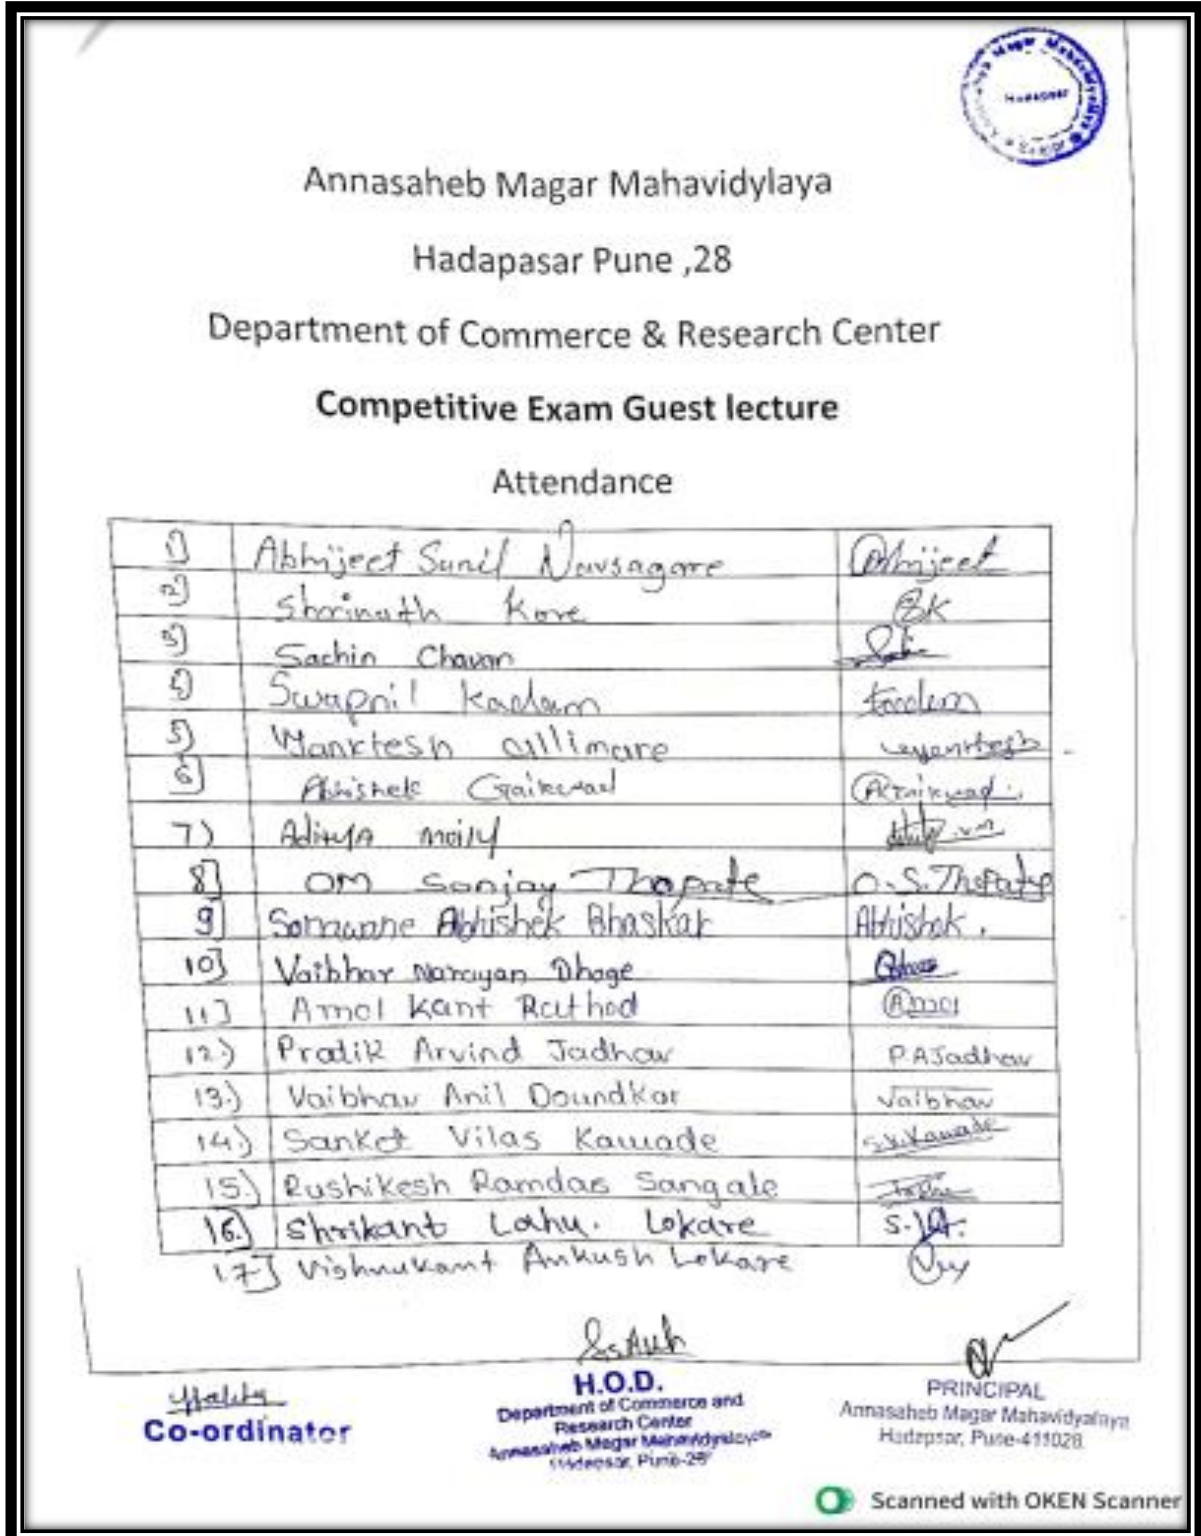 Magar Mahavidyalaya
Hadapsar
Annasaheb Magar Mahavidylaya
Hadapasar Pune ,28
Department of Commerce & Research Center
Competitive Exam Guest lecture
Attendance
1) Abhijeet Sunil Navsagare Abhijeet
2) Shrinath Kore SK
3) Sachin Chavan
4) Swapnil Kadam Kadam
5) Vanktesh allimare
6] Abhishek Gaikwad AGaikwad.
7) Aditya moily
8] OM Sanjay Thopate O.S.Thopate
9] Sonawane Abhishek Bhaskar Abhishek.
10] Vaibhav Narayan Dhage
11] Amol Kant Rathod Amol
12.) Pratik Arvind Jadhav P.A.Jadhav
13.) Vaibhav Anil Doundkar Vaibhav
14.) Sanket Vilas Kawade S.V.Kawade
15.) Rushikesh Ramdas Sangale
16.) Shrikant Lahu. Lokare
17] Vishnukant Ankush Lokare
Co-ordinator
H.O.D.
Department of Commerce and
Research Center
Annasaheb Magar Mahavidyalaya
Hadapsar, Pune-28
PRINCIPAL
Annasaheb Magar Mahavidyalaya
Hadapsar, Pune-411028.
Scanned with OKEN Scanner